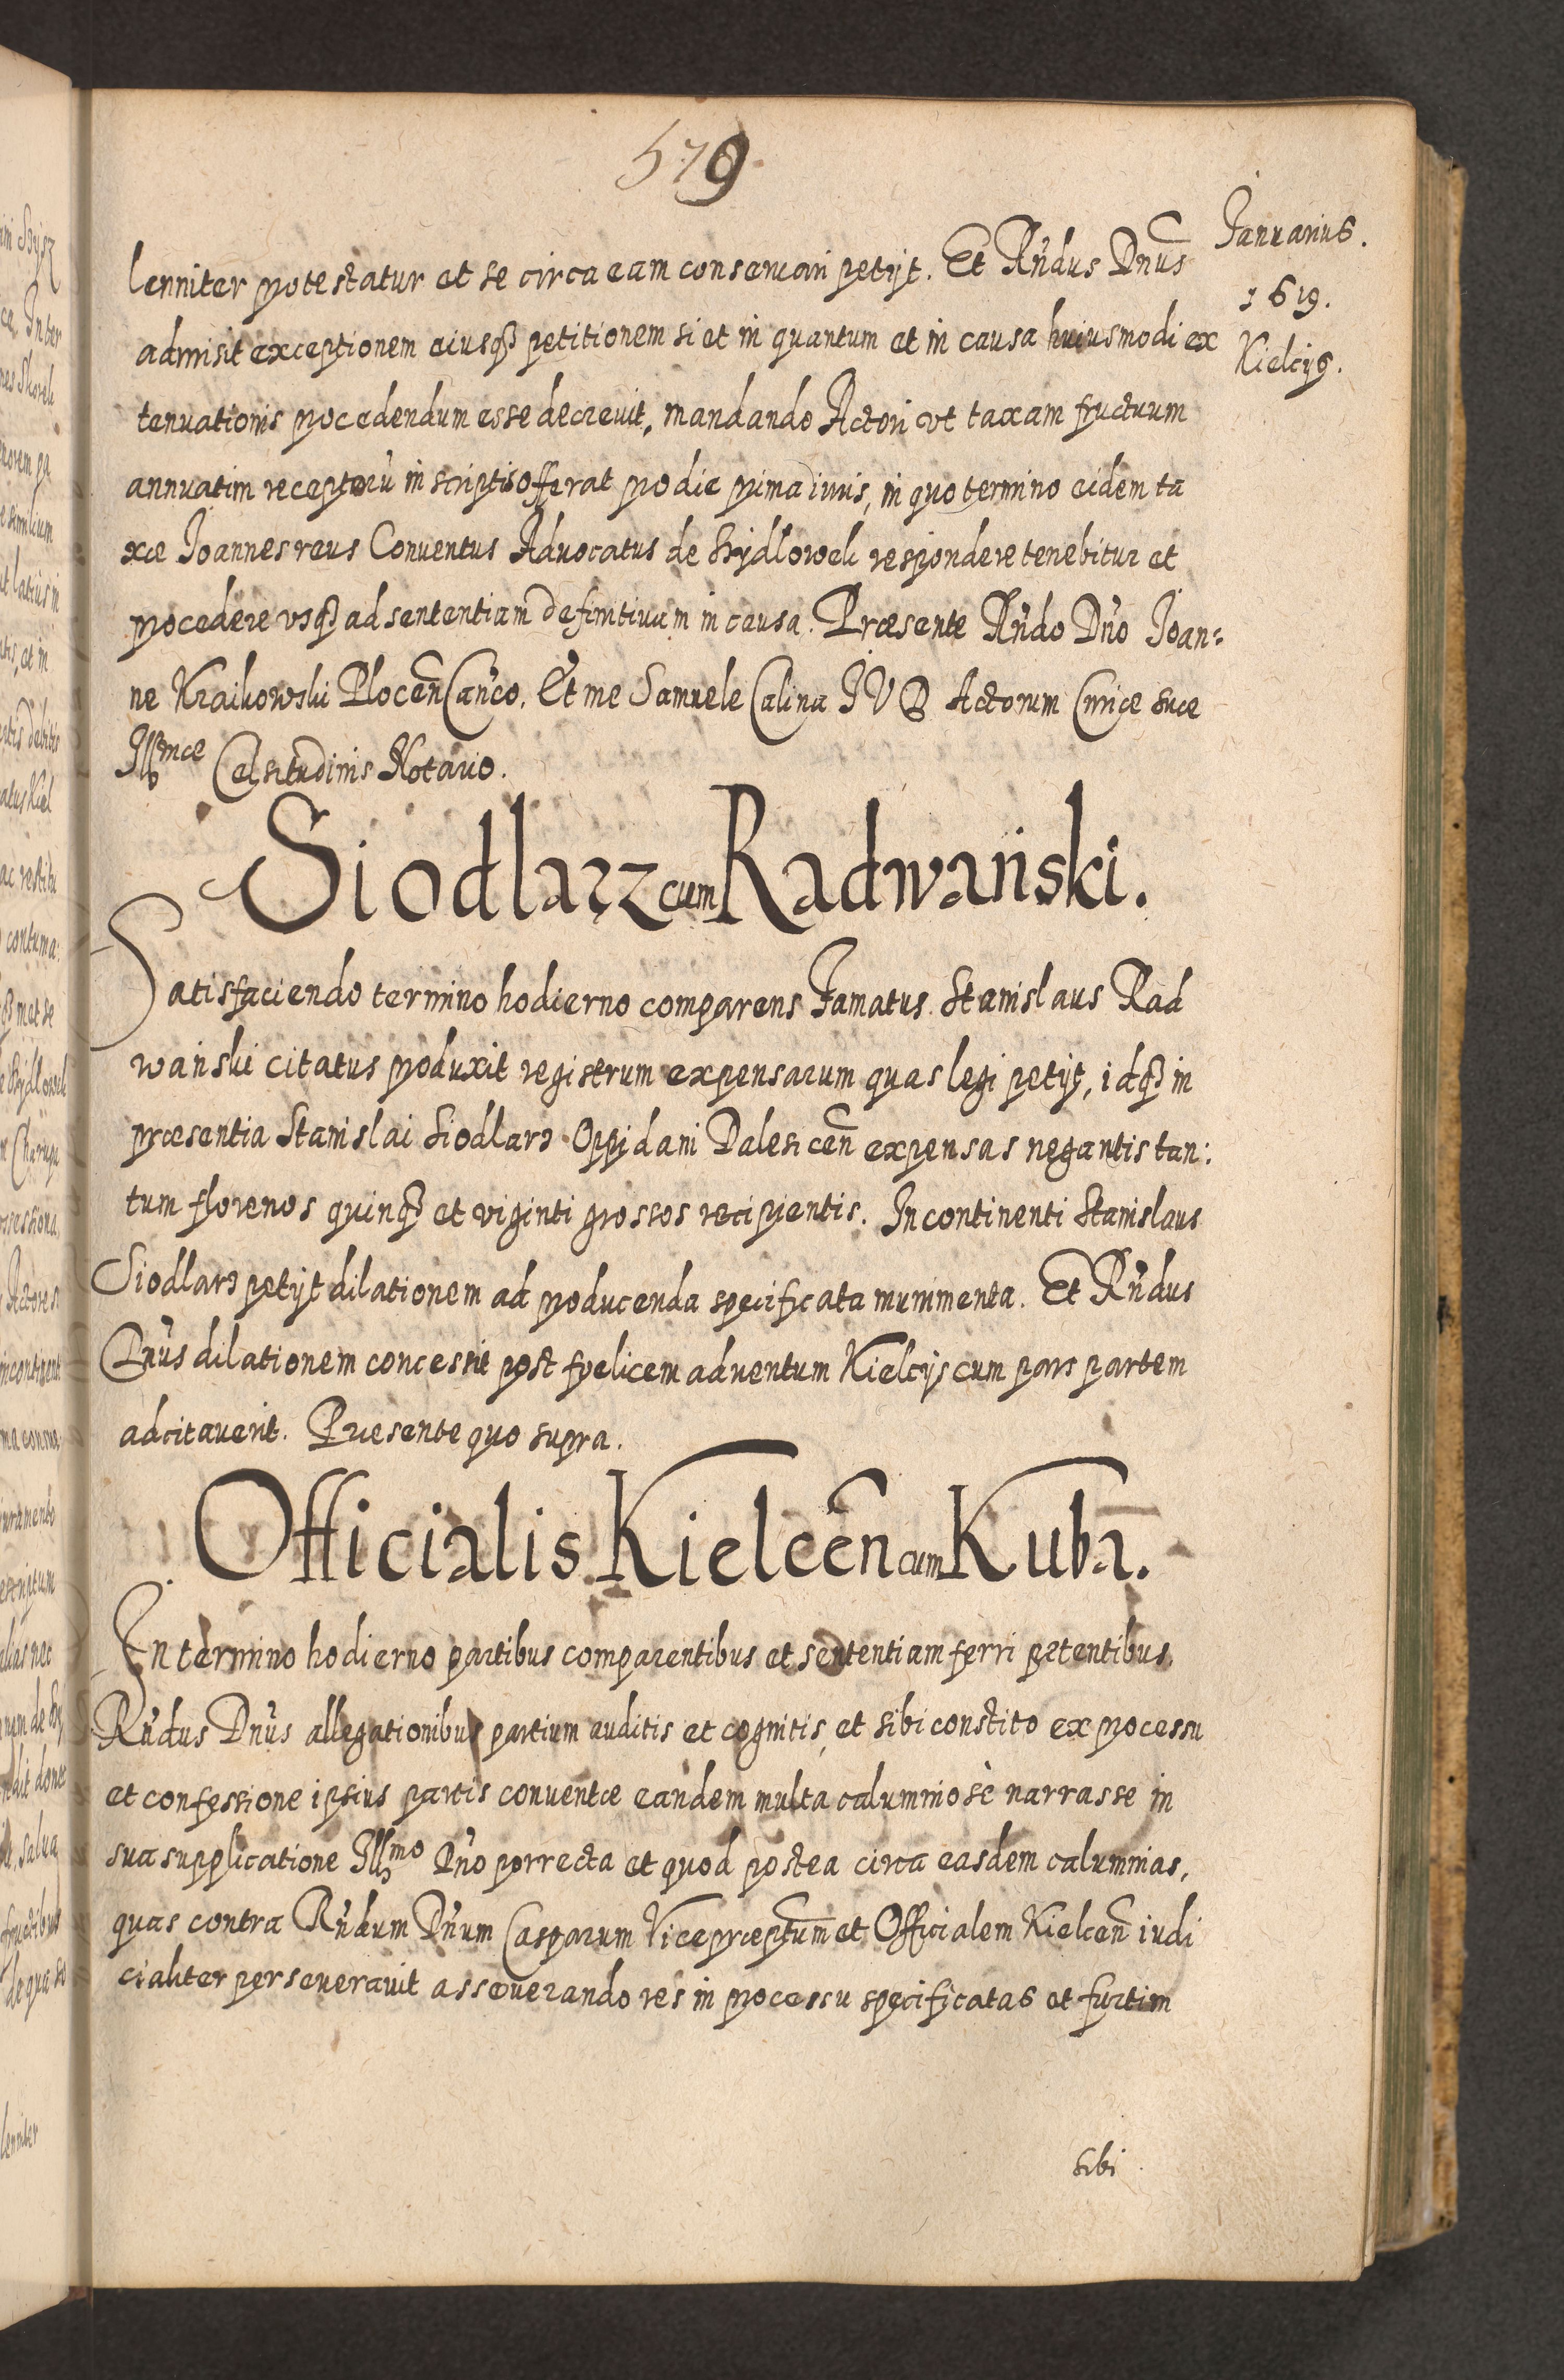 579
Januarius.
1619.
Kielcijs.
lenniter protestatur et se circa eam conservari petijt. Et Rńdus Dnus
admisit exceptionem eiusq petitionem si et in quantum et in causa huiusmodi ex
tenuationis procedendum esse decrevit, mandando Actori ut taxam fructuum
annuatim receptorũ in scriptis offerat pro die prima iuris, in quo termino eidem ta
xæ Joannes reus Conventus Advocatus de Szydlowek respondere tenebitur et
procedere usq ad sententiam definitivam in causa. Præsente Rńdo Dńo Joan=
ne Kraikowski Plocen Canco. Et me Samuele Calina JUD Actorum Curiæ suæ
Illmæ Celsitudinis Notario.
Siodlarz cum Radwański.
Satisfaciendo termino hodierno comparens Famatus Stanislaus Rad
wański citatus produxit registrum expensarum quas legi petijt, idq in
præsentia Stanislai Siodlarz Oppidani Dalesicen expensas negantis tan:
tum florenos quinq et viginti grossos recipientis. Incontinenti Stanislaus
Siodlarz petijt dilationem ad producenda specificata munimenta. Et Rńdus
Dńus dilationem concessit post fœlicem adventum Kielcijs cum pars partem
adcitaverit. Præsente quo supra.
Officialis Kielcen cum Kuba.
In termino hodierno partibus comparentibus et sententiam ferri petentibus,
Rńdus Dńus allegationibus partium auditis et cognitis, et sibi constito ex processu
et confessione ipsius partis conventæ eandem multa calumniosè narrasse in
sua supplicatione Illmo Dńo porrecta et quod postea circa easdem calumnias,
quas contra Rńdum Dńum Casparum Vicepræptum et Officialem Kielcen iudi
cialiter perseveravit asseverando res in processu specificatas et furtim
sibi